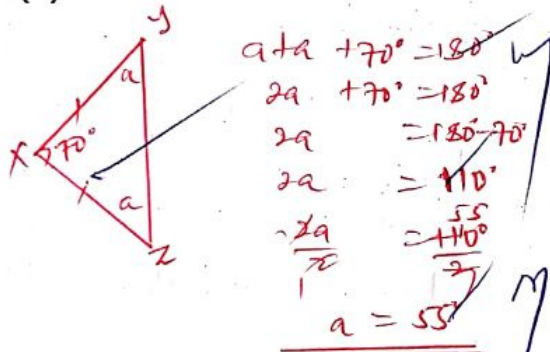 y
a
X 70°
a
Z
a+a +70° =180°
2a +70° =180°
2a =180°-70°
2a =110°
2a/2 =110°/2
1 55
a = 55°